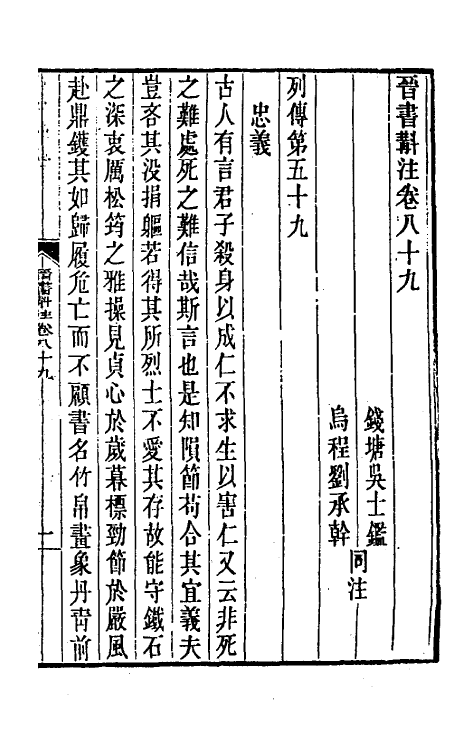 晉書斠注卷八十九
錢塘吳士鑑
烏程劉承幹
同注
列傳第五十九
忠義
古人有言君子殺身以成仁不求生以害仁又云非死
之難處死之難信哉斯言也是知隕節苟合其宜義夫
豈吝其没捐軀若得其所烈士不愛其存故能守鐵石
之深衷厲松筠之雅操見貞心於歲暮標勁節於嚴風
赴鼎鑊其如歸履危亡而不顧書名竹帛畫象丹靑前
晉書斠注卷八十九
一